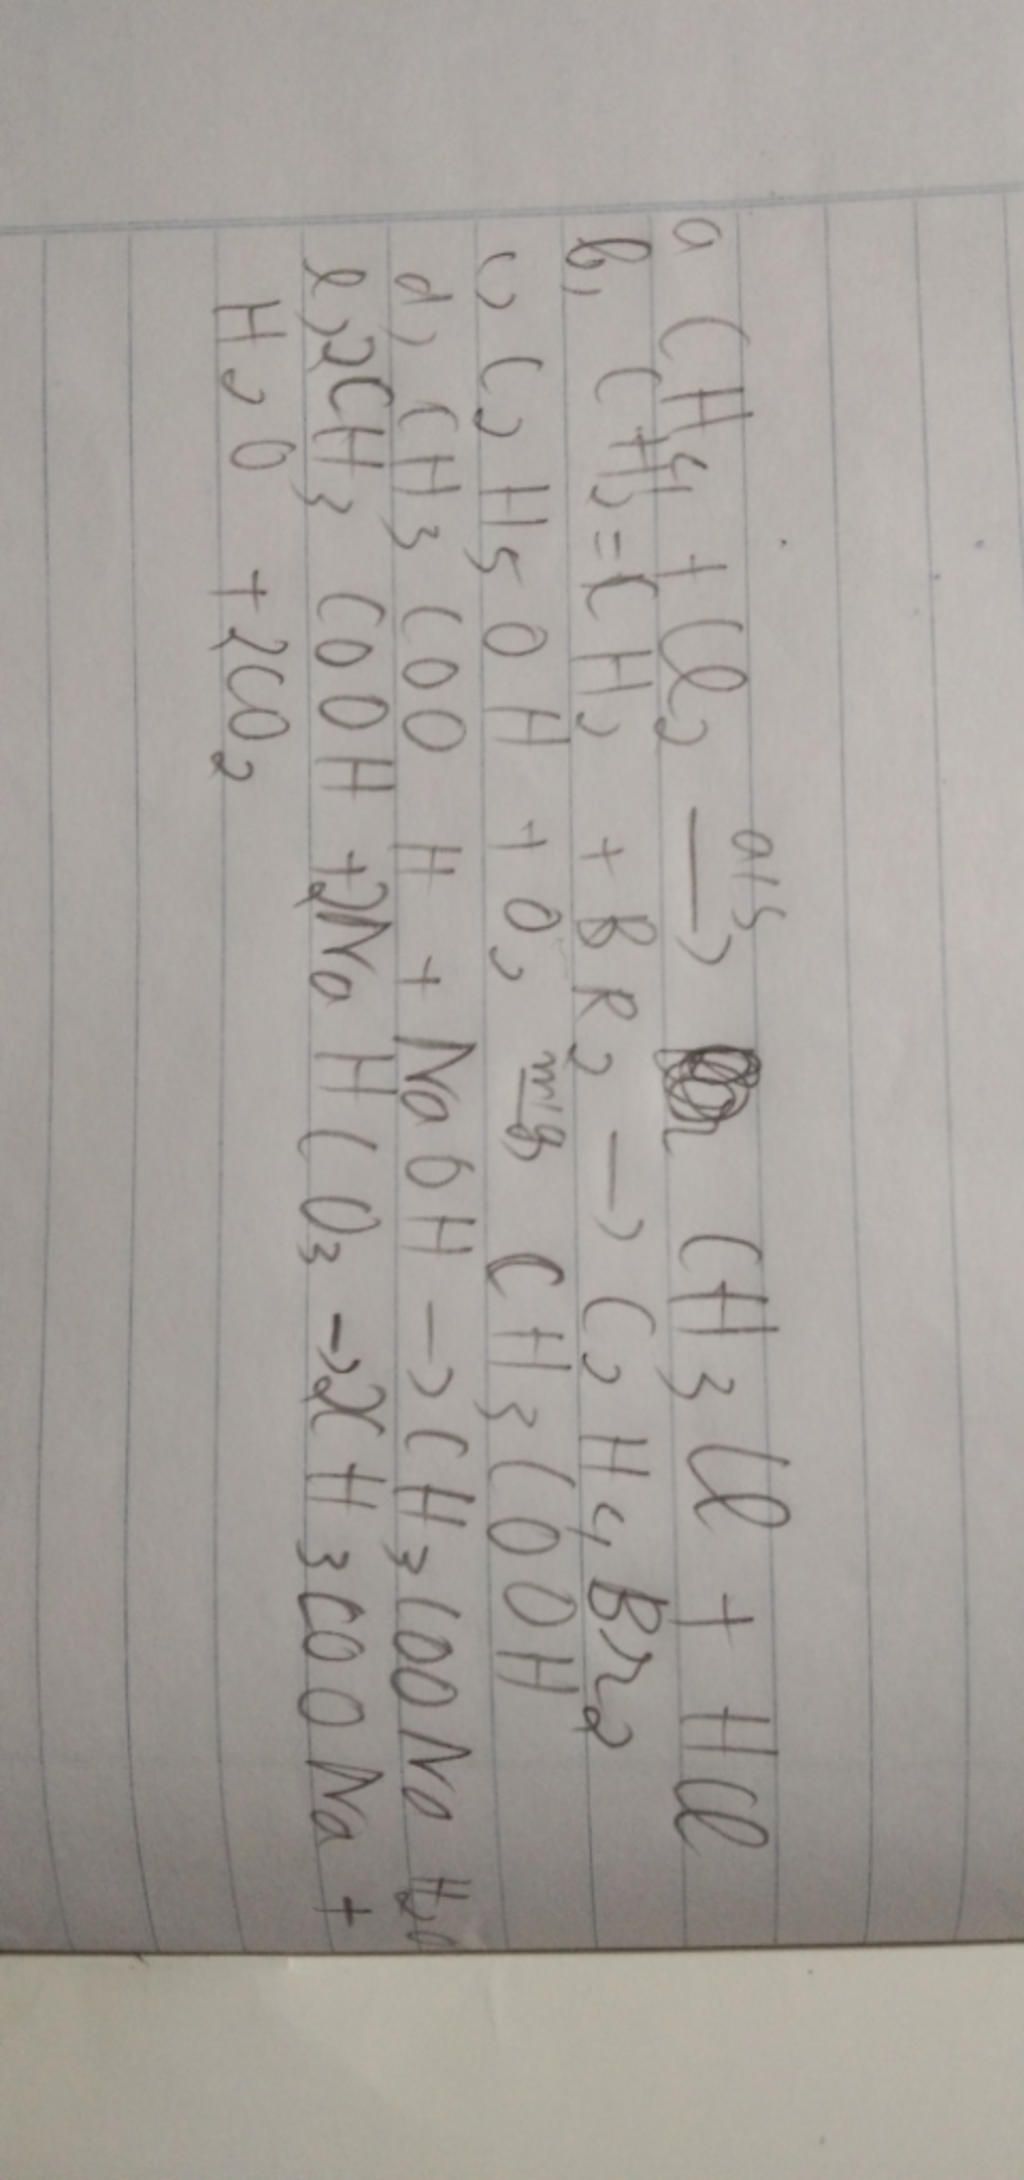 a CH4 + Cl2 —as→ CH3Cl + HCl
b, CH2=CH2 + BR2 → C2H4Br2
c, C2H5OH + O2 mig CH3COOH
d, CH3COOH + NaOH → CH3COONa H2O
e, 2CH3COOH +2NaHCO3 → 2CH3COONa +
H2O +2CO2